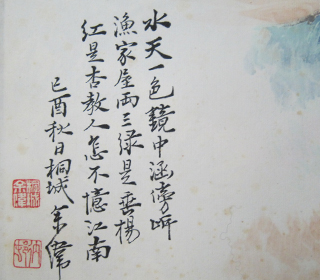 水天一色鏡中涵傍岍
漁家屋兩三綠是垂楊
紅是杏教人怎不憶江南
己酉秋日桐城